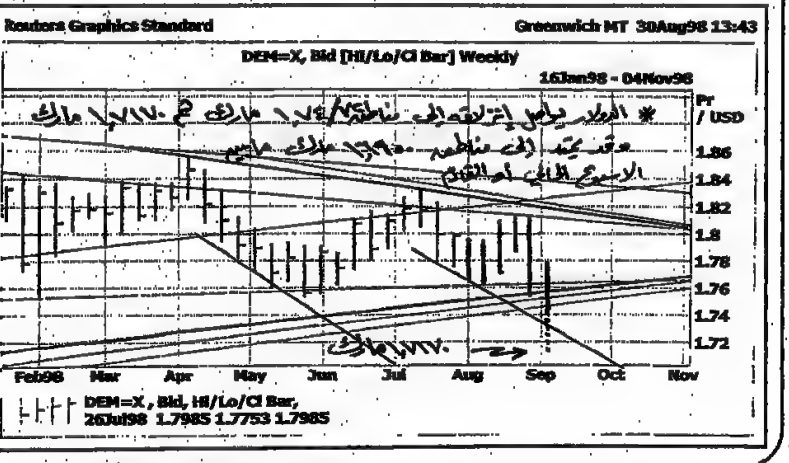 Reuters Graphics Standard
Greenwich MT 30Aug98 13:43
DEM=X, Bid [Hi/Lo/Cl Bar] Weekly
16Jan98 - 04Nov98
Pr
/ USD
* الدولار يواصل إنزلاقه إلى مناطق ١,٧٤/٧٥ مارك ثم ١,٧١٧٠ مارك
وقد يمتد إلى مارك
الاسبوع الحالي أو القادم
1.86
1.84
1.82
1.8
1.78
1.76
1.74
1.72
١,٧١٧٠ مارك
Feb98 Mar Apr May Jun Jul Aug Sep Oct Nov
DEM=X, Bid, Hi/Lo/Cl Bar,
26Jul98 1.7985 1.7753 1.7985